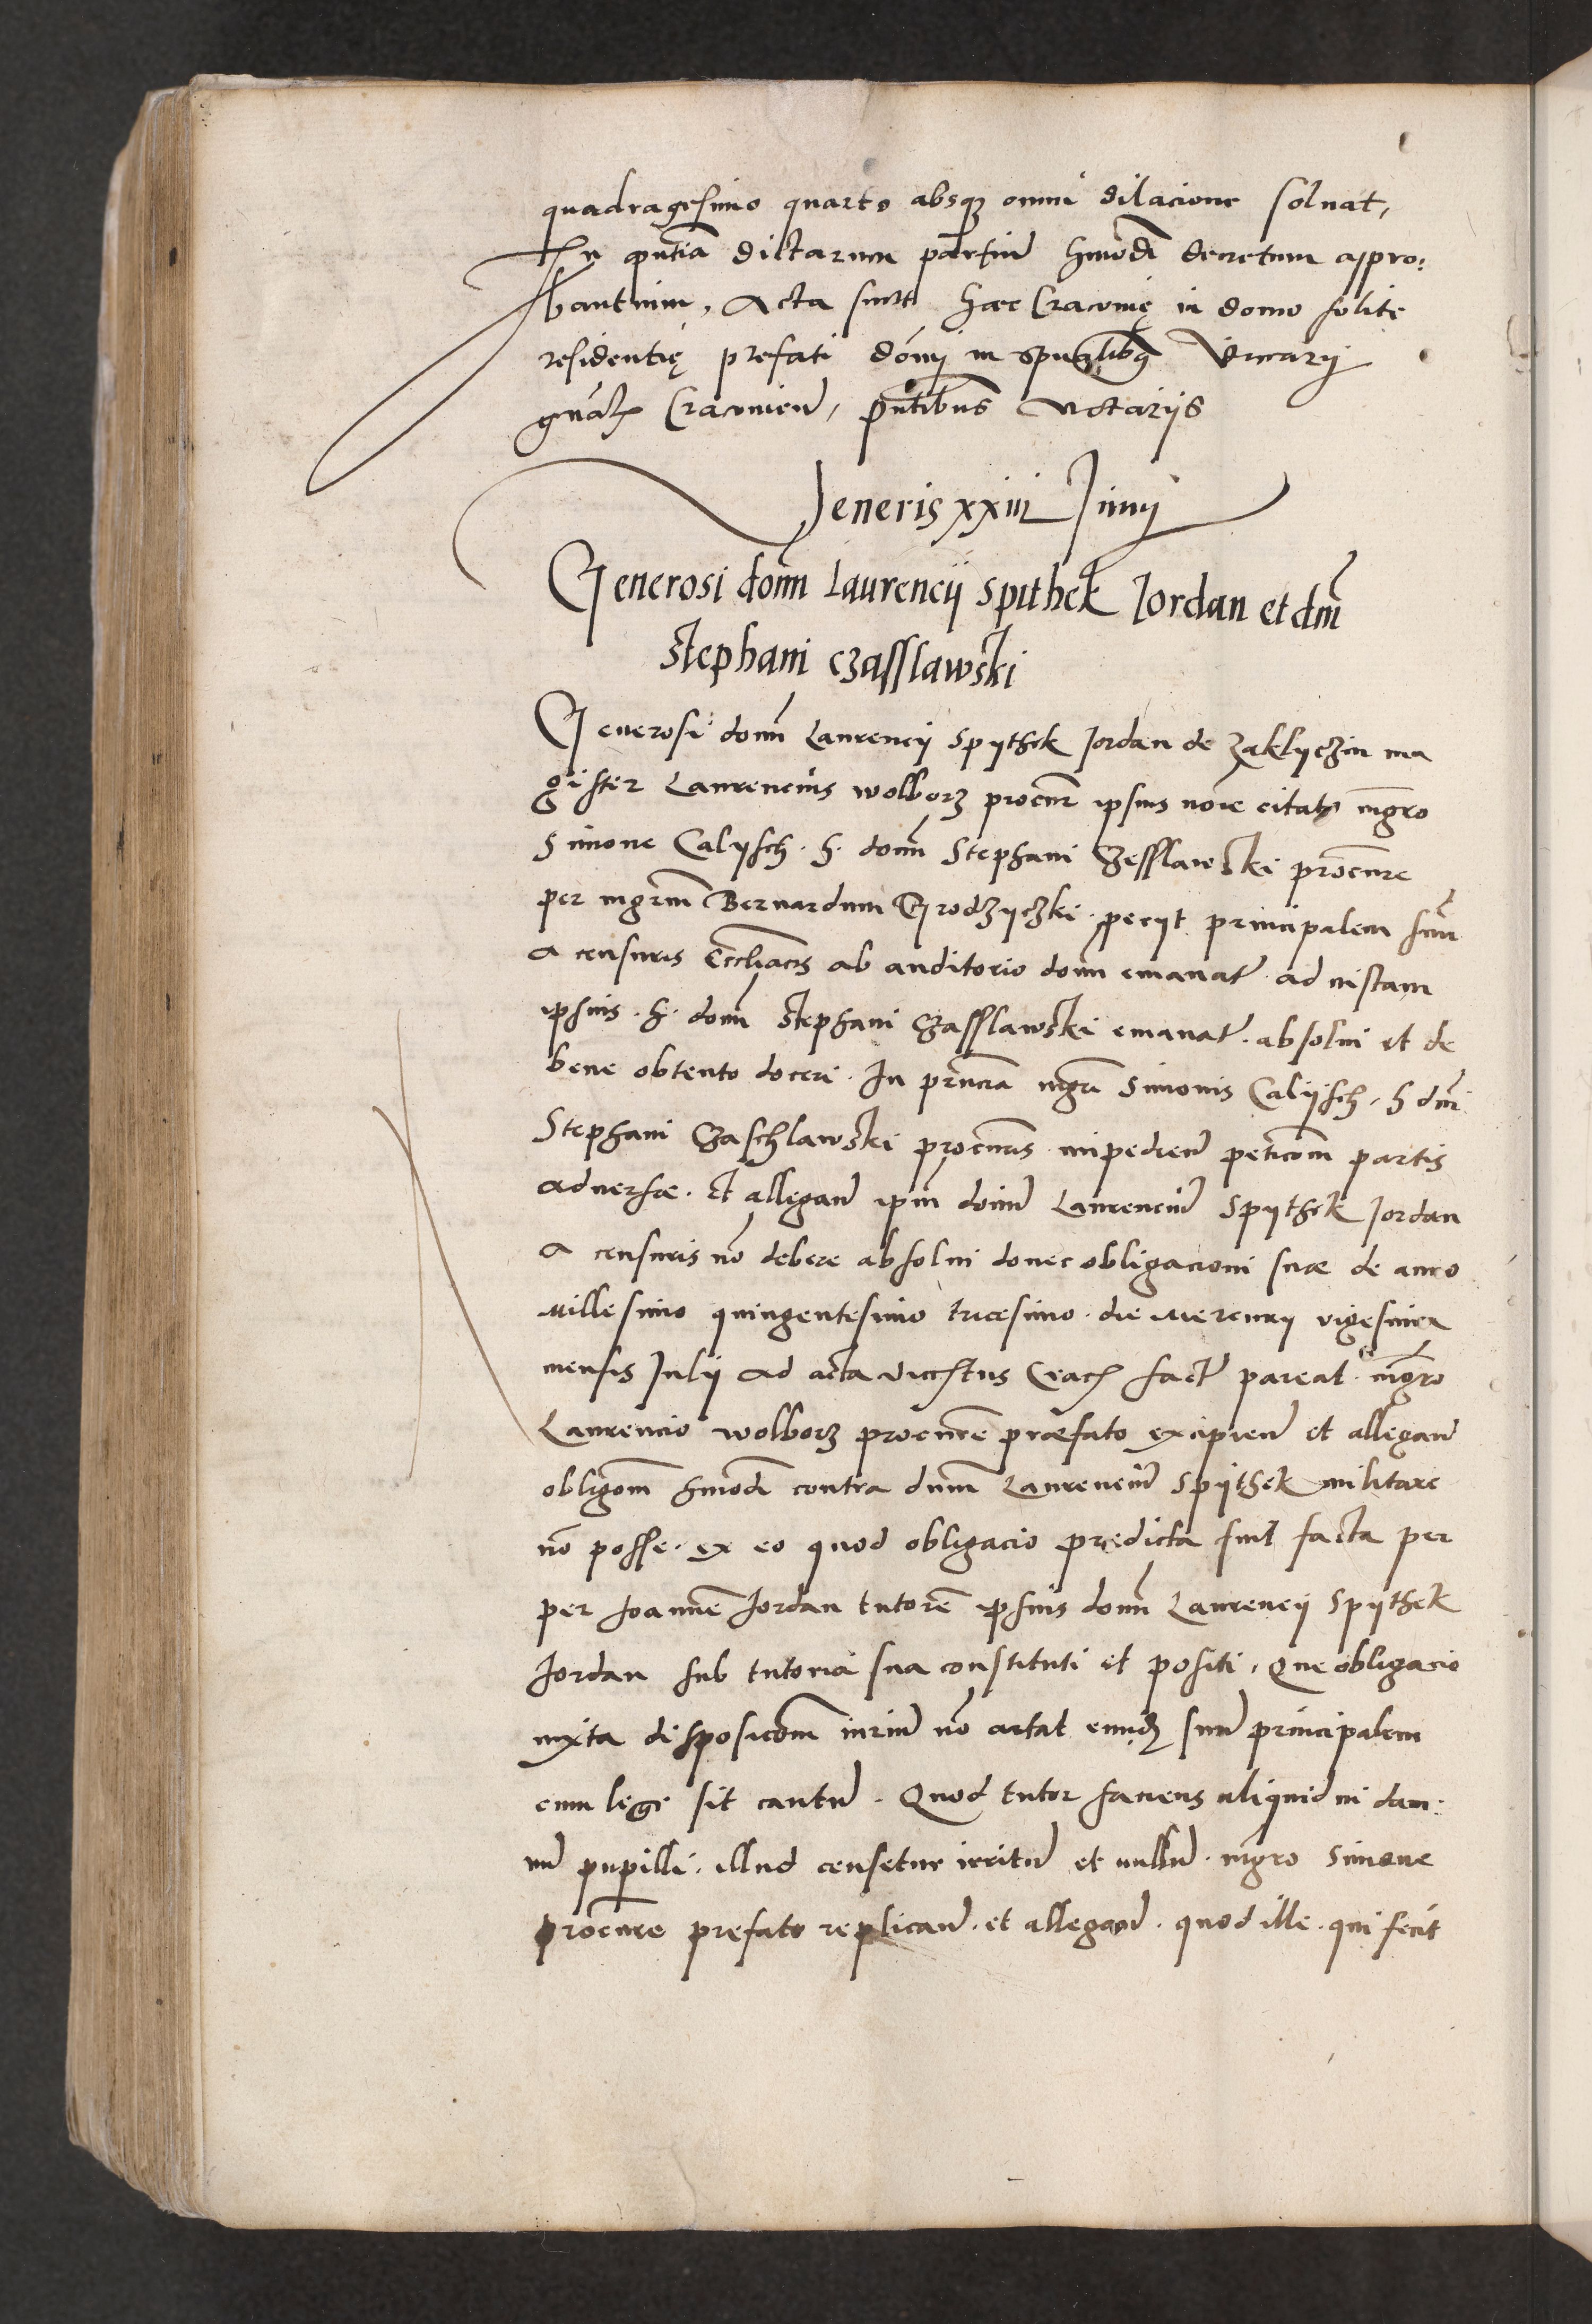 quadragesimo quarto absq3 omni dilacione soluat,
In pntia dictarum partiu hmodi decretum appro:
bantium, Acta sunt hec Cracouię in domo solite
residentię prefati domi in spualibus Vicarij
gnalis Cracouien, pntibus Notariis
Veneris xxiiii Junij
Generosi domi Laurencij Spithek Jordan et dni
Stephani Czasslawski
Generosi domi Laurencij Spythek Jordan de Zaklyczin ma
gister Laurencius wolborz procur ipsius noie citato mgro
Simone Calysch. h. domi Stephani Czesslawski procure
per mgrm Bernardum Grodzyczki. pecijt principalem suu
a censuris ecclliacis ab auditorio domi emanat. ad instam
ipsius. h. domi Stephani Czasslawski emanat. absolui et de
bene obtento doceri. In pncia mgri Simonis Calijsch, h dni
Stephani Czaschlawski procuris impedien peticom partis
aduerse. et allegan ipm domu Laurenciu Spythek Jordan
a censuris no debere absolui donec obligacioni sue de anno
Millesimo quingentesimo tricesimo. die Mercurij vigesima
mensis Julij ad acta Craco facte pareat. mgro
Laurencio wolborz procure prefato excipien et allegan
obligom hmodi contra dnum Laurenciu Spythek militare
no posse. ex eo quod obligacio predicta fuit facta per
per Joanne Jordan tutore ipsius domi Laurencij Spythek
Jordan sub tutoria sua constituti et positi, Que obligacio
iuxta disposicom iuriu no artat eund suu principalem
cum lege sit cautu. Quod tutor faciens aliquid in dam:
nu pupilli. illud censetur irritu et nullu. mgro Simone
procure prefato replican. et allegan. quod ille. qui fecit